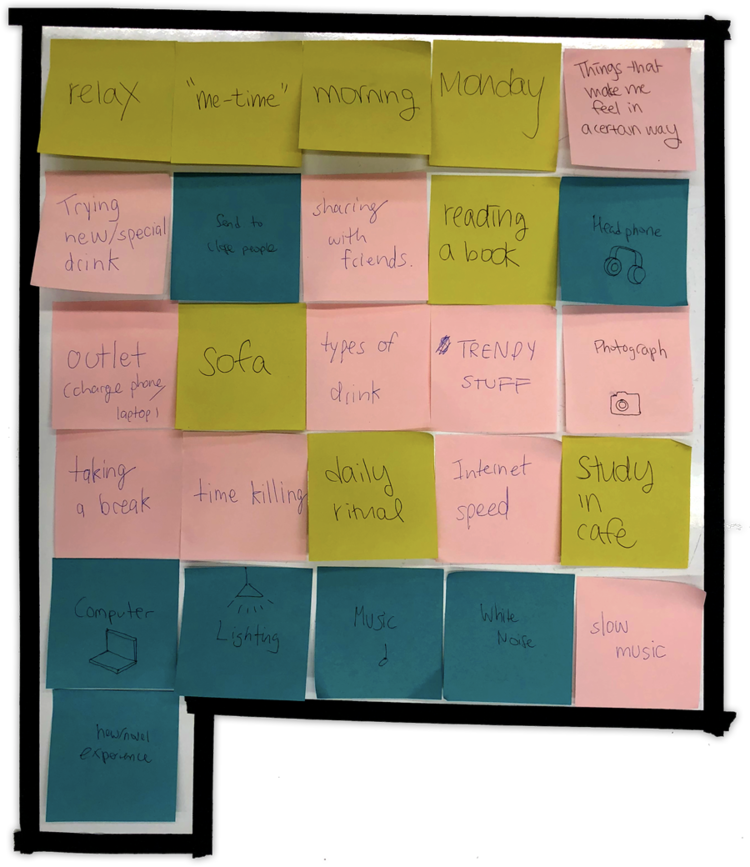 relax
"me-time"
morning
Monday
Things that
make me
feel in
a certain way
Trying
new/special
drink
Send to
close people
sharing
with
friends.
reading
a book
Headphone
outlet
(charge phone/
laptop)
Sofa
types of
drink
TRENDY
STUFF
Photograph
taking
a break
time killing
daily
ritual
Internet
speed
Study
in
cafe
Computer
Lighting
Music
White
Noise
slow
music
experience